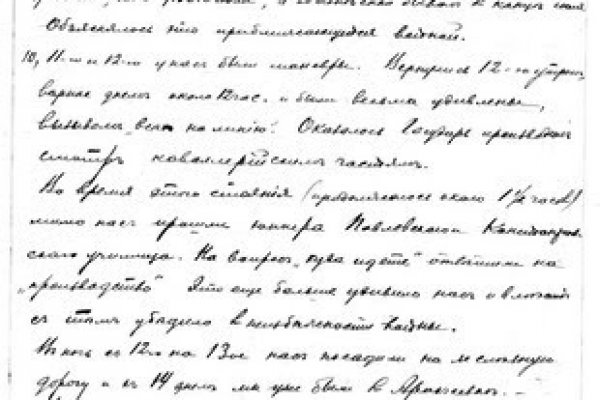 Объяснялось это приближающейся войной.
10, 11-го и 12-го у нас были маневры. Вернулись 12-го утром,
вернее днем около 12 час. и были весьма удивлены,
вызовом „всех на линию". Оказалось Государь производит
смотр кавалерийским частям.
Во время этого стояния (продолжалось около 1½ часов)
мимо нас прошли юнкера Павловского
училища. На вопрос „куда идете" ответили на
„производство" Это еще больше удивило нас и
с тем убедило в неизбежности войны.
В ночь с 12-го на 13-ое нас посадили на железную
дорогу и в 14 днем мы уже были в